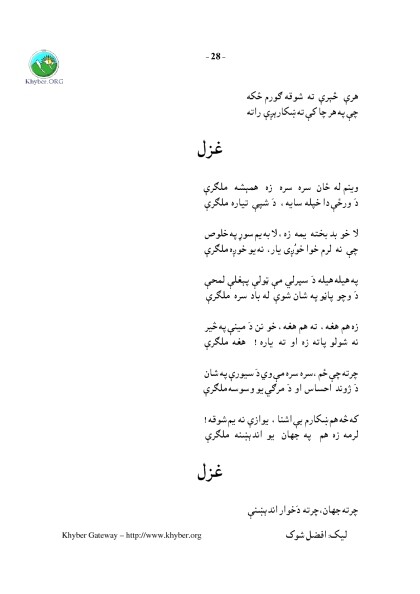 - 28 -
Khyber.ORG
هرې خبرې ته شوقه ګورم ځکه
چې په هر چا کې ته ښکارېږې راته
غزل
وينم له ځان سره سره زه همېشه ملګرې
دَ ورځې دا خپله سايه ، دَ شپې تياره ملګرې
لا خو بد بخته يمه زه ، لا به يم سوړ په خلوص
چې نه لرم خوا خوُږى يار، نه يو خوږه ملګرې
په هيله هيله دَ سپرلي مې ټولې پېغلې لمحې
دَ وچو پاڼو په شان شوې له باد سره ملګرې
زه هم هغه ، ته هم هغه ، خو نن دَ مينې په خير
نه شولو پاته زه او ته ياره ! هغه ملګرې
چرته چې ځم ، سره سره مې وي دَ سيورې په شان
دَ ژوند احساس او دَ مرګي يو وسوسه ملګرې
که څه هم ښکارم بې اشنا ، يوازې نه يم شوقه !
لرمه زه هم په جهان يو اندېښنه ملګرې
غزل
چرته جهان، چرته دَ خوار اندېښنې
ليک: افضل شوک
Khyber Gateway – http://www.khyber.org